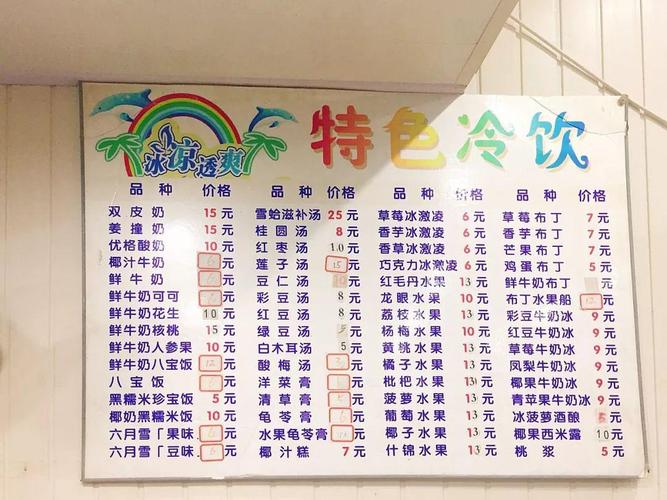 冰凉透爽
特色冷饮
品种 价格
双皮奶 15元
姜撞奶 15元
优格酸奶 10元
椰汁牛奶 6元
鲜牛奶 元
鲜牛奶可可 元
鲜牛奶花生 10元
鲜牛奶核桃 15元
鲜牛奶人参果 10元
鲜牛奶八宝饭 12元
八宝饭 元
黑糯米珍宝饭 5元
椰奶黑糯米饭 10元
六月雪「果味」 6元
六月雪「豆味」 6元
品种 价格
雪蛤滋补汤 25元
桂圆汤 8元
红枣汤 10元
莲子汤 15元
豆仁汤 10元
彩豆汤 8元
红豆汤 8元
绿豆汤 5元
白木耳汤 5元
酸梅汤 元
洋菜膏 元
清草膏 元
龟苓膏 6元
水果龟苓膏 元
椰汁糕 7元
品种 价格
草莓冰激凌 6元
香芋冰激凌 6元
香草冰激凌 6元
巧克力冰激凌 6元
红毛丹水果 13元
龙眼水果 10元
荔枝水果 13元
杨梅水果 10元
黄桃水果 13元
橘子水果 13元
枇杷水果 13元
菠萝水果 13元
葡萄水果 13元
椰子水果 13元
什锦水果 13元
品种 价格
草莓布丁 7元
香芋布丁 7元
芒果布丁 7元
鸡蛋布丁 5元
鲜牛奶布丁 元
布丁水果船 12元
彩豆牛奶冰 9元
红豆牛奶冰 9元
草莓牛奶冰 9元
凤梨牛奶冰 9元
椰果牛奶冰 9元
青苹果牛奶冰 9元
冰菠萝酒酿 元
椰果西米露 10元
桃浆 5元